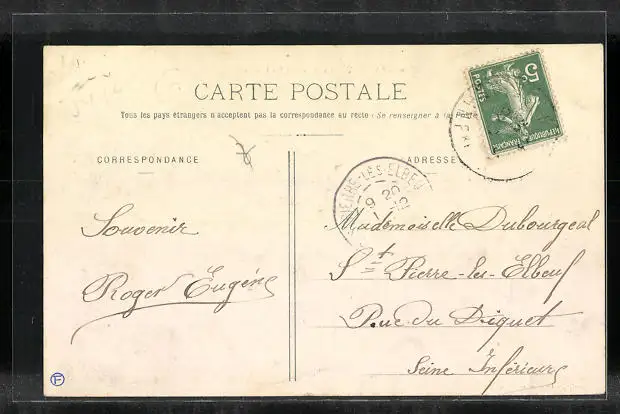 CARTE POSTALE
Tous les pays étrangers n'acceptent pas la correspondance au recto (Se renseigner à la Poste
CORRESPONDANCE
ADRESSE
Souvenir
Roger Eugène
Mademoiselle Dubourgeal
St Pierre-les-Elbeuf
Rue du Diguet
Seine Inférieure
PIERRE-LÈS-ELBEUF
9 20
5c
POSTES
REPUBLIQUE FRANÇAISE
F